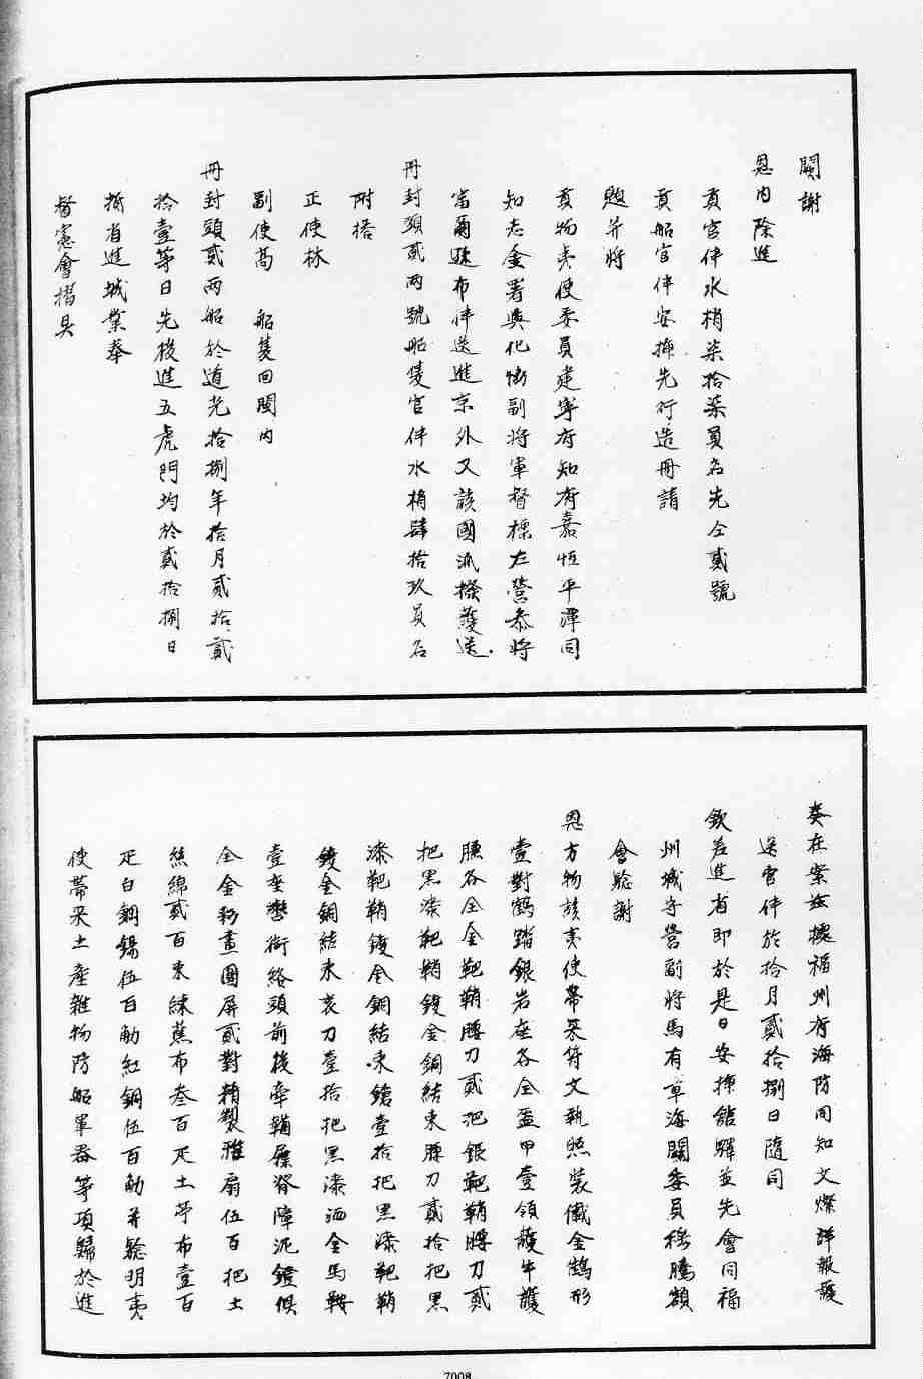 闕謝
恩內除進
貢官伴水梢柒拾柒員名先仝貳號
貢船官伴安揷先行造冊請
題并將
貢物夷使委員建寧府知府嘉恆平潭同
知志金署興化街副將軍督標左營參將
富爾遜布伴送進京外又該國派撥護送
冊封頭貳兩號船隻官伴水梢肆拾玖員名
附搭
正使林
副使高 船隻回閩內
冊封頭貳兩船於道光拾捌年拾月貳拾貳
拾壹等日先後進五虎門均於貳拾捌日
抵省進城業奉
督憲會摺具
奏在案茲據福州府海防同知文燦詳報護
送官伴於拾月貳拾捌日隨同
欽差進省即於是日安揷館驛並先會同福
州城守營副將馬有章海關委員穆騰額
會驗謝
恩方物該夷使帶來符文執照裝儎金鶴形
壹對鶴踏銀岩座各全盔甲壹領護手護
腰各全金靶鞘腰刀貳把銀靶鞘腰刀貳
把黑漆靶鞘鍍金銅結束腰刀貳拾把黑
漆靶鞘鍍金銅結束鎗壹拾把黑漆靶鞘
鍍金銅結束袞刀壹拾把黑漆洒金馬鞍
壹座轡銜絡頭前後牽鞦屜脊障泥鐙俱
全金彩畫圍屏貳對精製雅扇伍百把土
絲綿貳百束練蕉布叁百疋土苧布壹百
疋白鋼錫伍百觔紅銅伍百觔并驗明夷
使帶來土產雜物防船軍器等項歸於進
7008